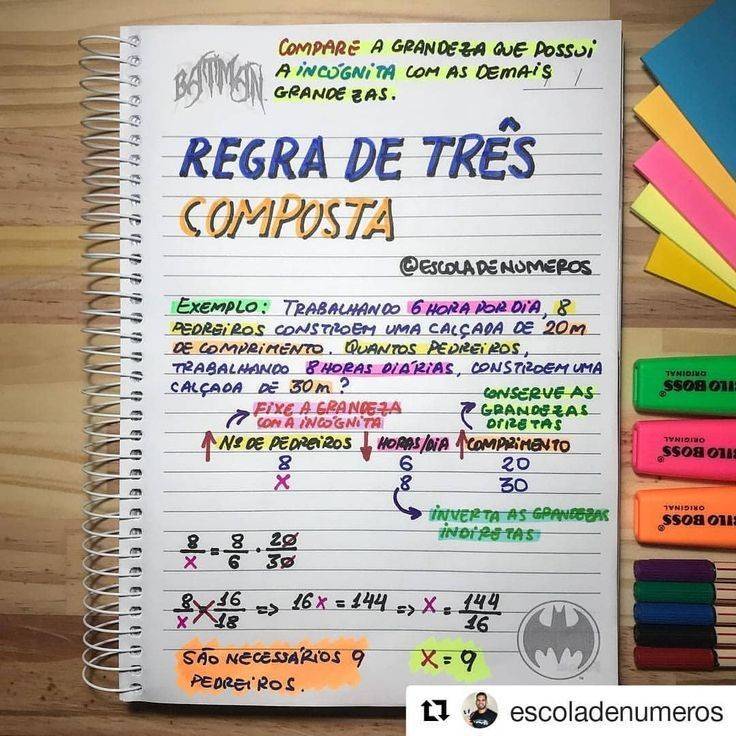 BATMAN
COMPARE A GRANDEZA QUE POSSUI
A INCÓGNITA COM AS DEMAIS
GRANDEZAS.
REGRA DE TRÊS
COMPOSTA
@ESCOLADENUMEROS
EXEMPLO: TRABALHANDO 6 HORA POR DIA, 8
PEDREIROS CONSTROEM UMA CALÇADA DE 20m
DE COMPRIMENTO. QUANTOS PEDREIROS,
TRABALHANDO 8 HORAS DIÁRIAS, CONSTROEM UMA
CALÇADA DE 30m?
FIXE A GRANDEZA
COM A INCÓGNITA
CONSERVE AS
GRANDEZAS
DIRETAS
↑ Nº DE PEDREIROS ↓ HORAS/DIA ↑ COMPRIMENTO
8 6 20
X 8 30
INVERTA AS GRANDEZAS
INDIRETAS
8/X = 8/6 · 20/30
8/X = 16/18 => 16X = 144 => X = 144/16
SÃO NECESSÁRIOS 9
PEDREIROS.
X = 9
BILO BOSS
ORIGINAL
BILO BOSS
ORIGINAL
BILO BOSS
ORIGINAL
escoladenumeros